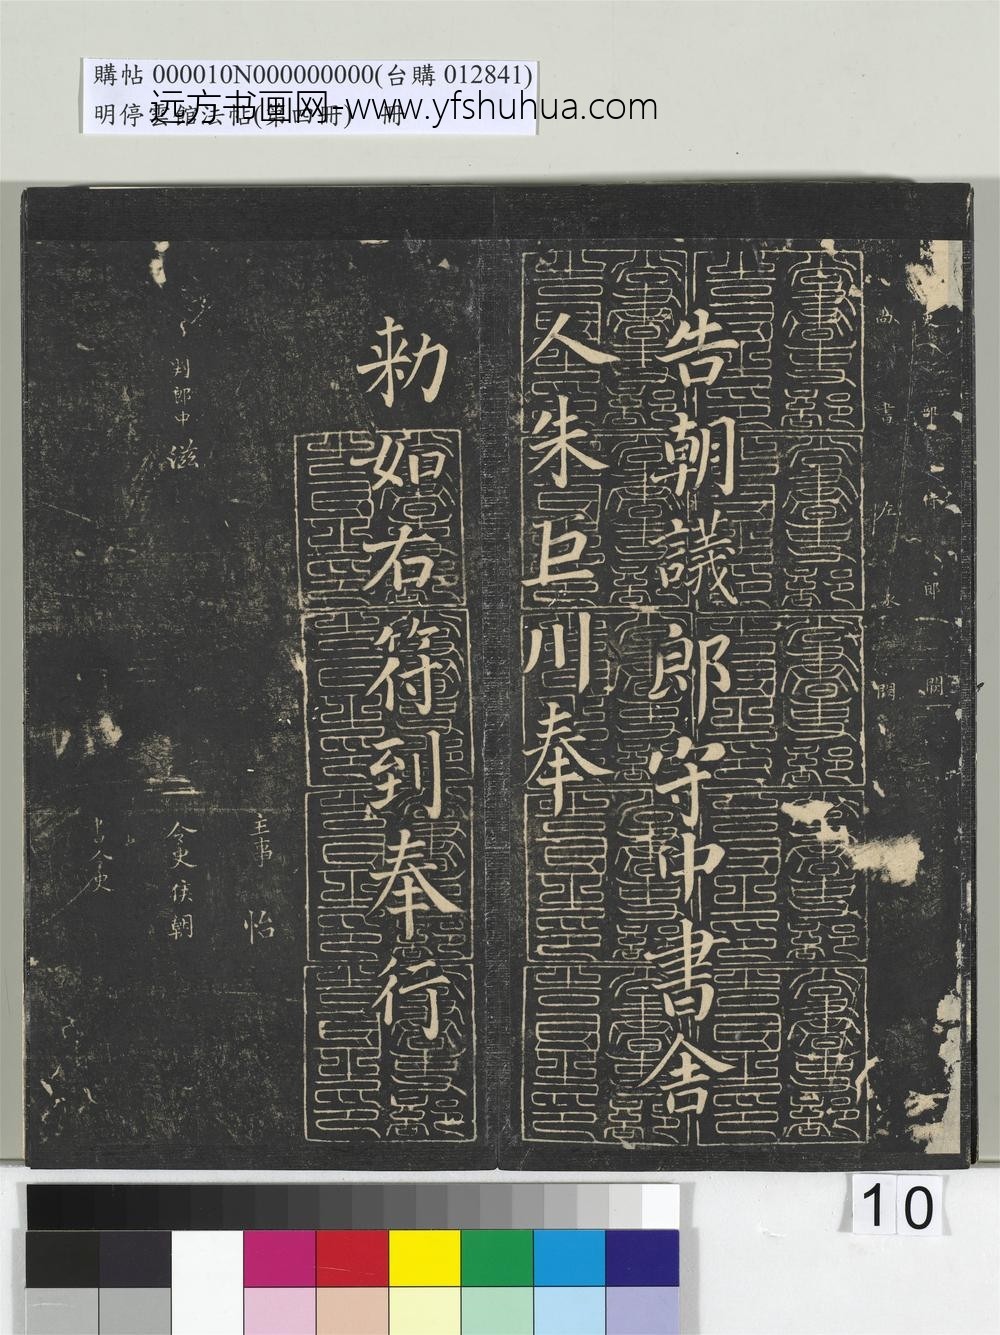 購帖 000010N000000000(台購 012841)
明停雲館法帖(第四冊) 冊
远方书画网-www.yfshuhua.com
部 郎 闕
尚書左丞 闕
告朝議郎守中書舍
人朱巨川奉
勅如右符到奉行
主事 怡
判郎中 滋
令史 侯朝
書令史
10